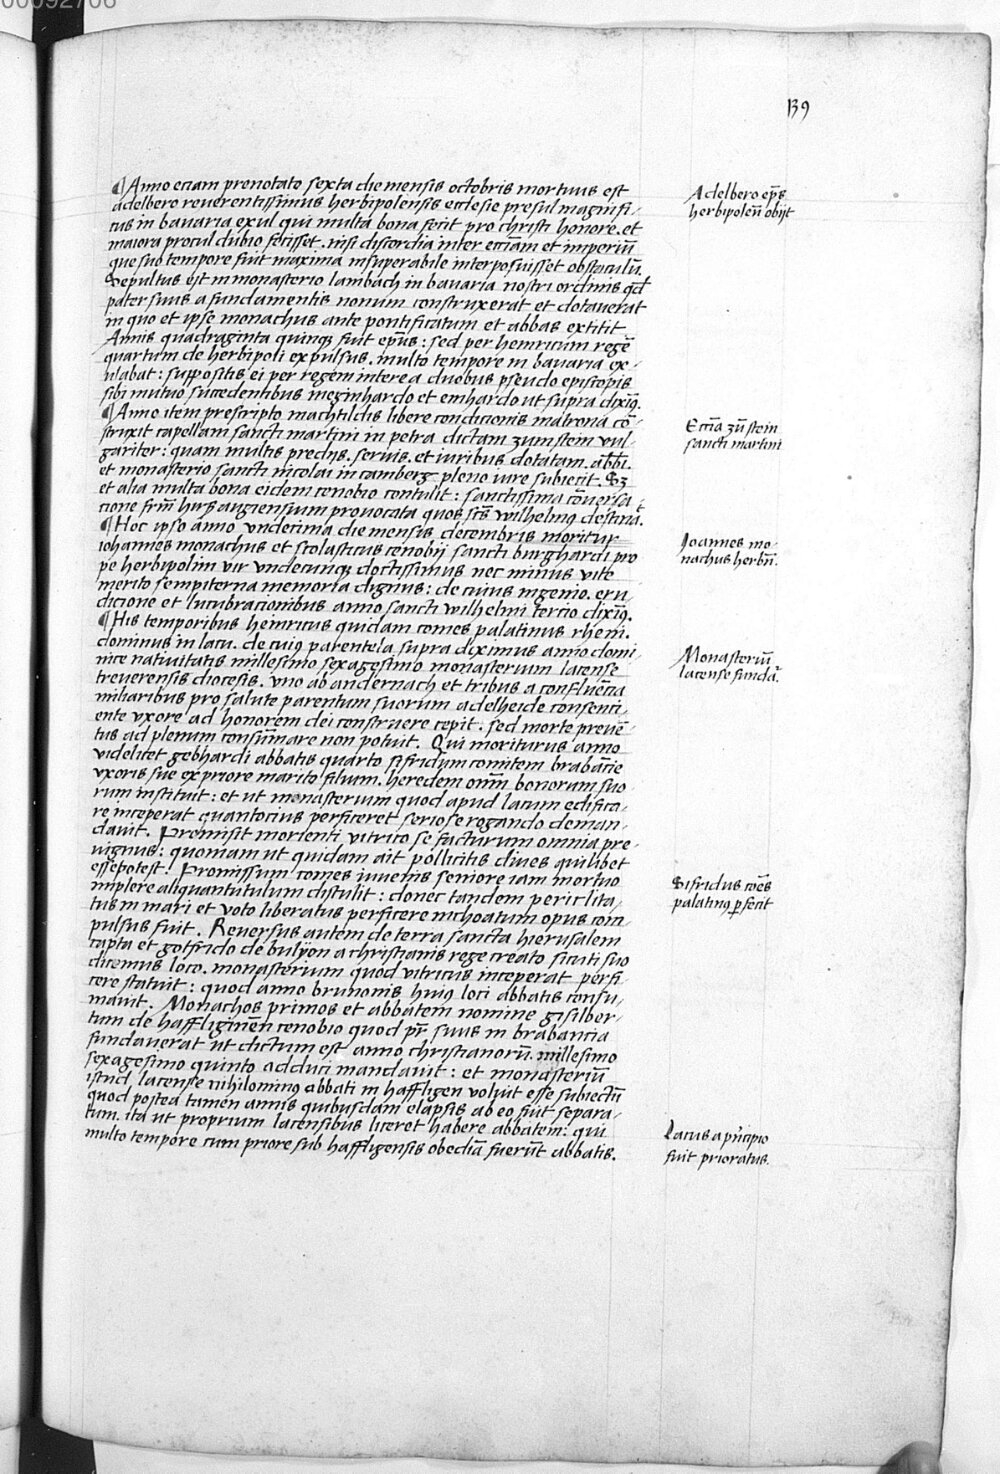 00092706
139
¶ Anno eciam prenotato sexta die mensis octobris mortuus est
adelbero reuerentissimus herbipolensis ecclesie presul magnifi-
cus in bauaria exul qui multa bona fecit pro christi honore. et
maiora procul dubio fecisset. nisi discordia inter ecciam et imperiū
que suo tempore fuit maxima insuperabile interposuisset obstaculū.
Sepultus est in monasterio lambach in bauaria nostri ordinis qd
pater suus a fundamentis nouum construxerat et dotauerat
in quo et ipse monachus ante pontificatum et abbas extitit
Annis quadraginta quinqꝫ fuit ep̄us: sed per henricum regē
quartum de herbipoli expulsus. multo tempore in bauaria ex-
ulabat: suppositis ei per regem interea duobus pseudo episcopis
sibi mutuo succedentibus meginhardo et emhardo ut supra diximꝰ.
¶ Anno item prescripto machtildis libere condicionis matrona cō-
struxit capellam sancti martini in petra dictam zumstein vul-
gariter: quam multis predijs. seruis. et iuribus dotatam. abbi.
et monasterio sancti nicolai in camberg pleno iure subiecit. Sꝫ
et alia multa bona eidem cenobio contulit: sanctissima cōuersa-
cione frm̄ hirsaugiensium prouocata quos scs wilhelmꝰ destinat.
¶ Hoc ipso anno vndecima die mensis decembris moritur
iohannes monachus et scolasticus cenobij sancti burghardi pro
pe herbipolim vir vndecunqꝫ doctissimus nec minus vite
merito sempiterna memoria dignus: de cuius ingenio. eru-
dicione et lucubracionibus anno sancti wilhelmi tercio diximꝰ.
¶ His temporibus heinricus quidam comes palatinus rheni.
dominus in lacu. de cuiꝰ parentela supra diximus anno domi-
nice natiuitatis millesimo sexagesimo monasterium lacense
treuerensis diocesis. vno ab andernach et tribus a confluēcia
miliaribus pro salute parentum suorum adelheide consenci-
ente vxore ad honorem dei construere cepit. sed morte preuē-
tus ad plenum consummare non potuit. Qui moriturus anno
videlicet gebhardi abbatis quarto sifridum comitem brabācie
vxoris sue ex priore marito filium. heredem omm̄ bonorum suo-
rum instituit: et ut monasterium quod apud lacum edifica-
re inceperat quantocius perficeret seriose rogando deman-
dauit. Promisit morienti vitrico se facturum omnia pre-
uignus: quoniam ut quidam ait pollicitis diues quilibet
esse potest. Promissum comes iuuenis seniore iam mortuo
implere aliquantutulum distulit: donec tandem periclita-
tus in mari et voto liberatus perficere inchoatum opus com-
pulsus fuit. Reuersus autem de terra sancta hierusalem
capta et gotfrido de bulyon a christianis rege creato sicuti suo
dicemus loco. monasterium quod vitricus inceperat perfi-
cere statuit: quod anno brunonis huiꝰ loci abbatis consu-
mauit. Monachos primos et abbatem nomine gisilber-
tum de haffliginēn cenobio quod pr̄ suus in brabancia
fundauerat ut dictum est anno christianorū. millesimo
sexagesimo quinto adduci mandauit: et monasteriū
istud lacense nihilominꝰ abbati in haffligen voluit esse subiectū
quod postea tamen annis quibusdam elapsis ab eo fuit separa-
tum. ita ut proprium lacensibus liceret habere abbatem: qui
multo tempore cum priore sub haffligensis obediā fuerūt abbatis.
Adelbero ep̄s
herbipoleñ obijt
Eccīa zū stein
sancti martini
Joannes mo-
nachus herbñ.
Monasteriū
lacense fundaͭ.
Sifridus coēs
palatinꝰ ꝑfecit
Lacus a pr̄ncipio
fuit prioratus.